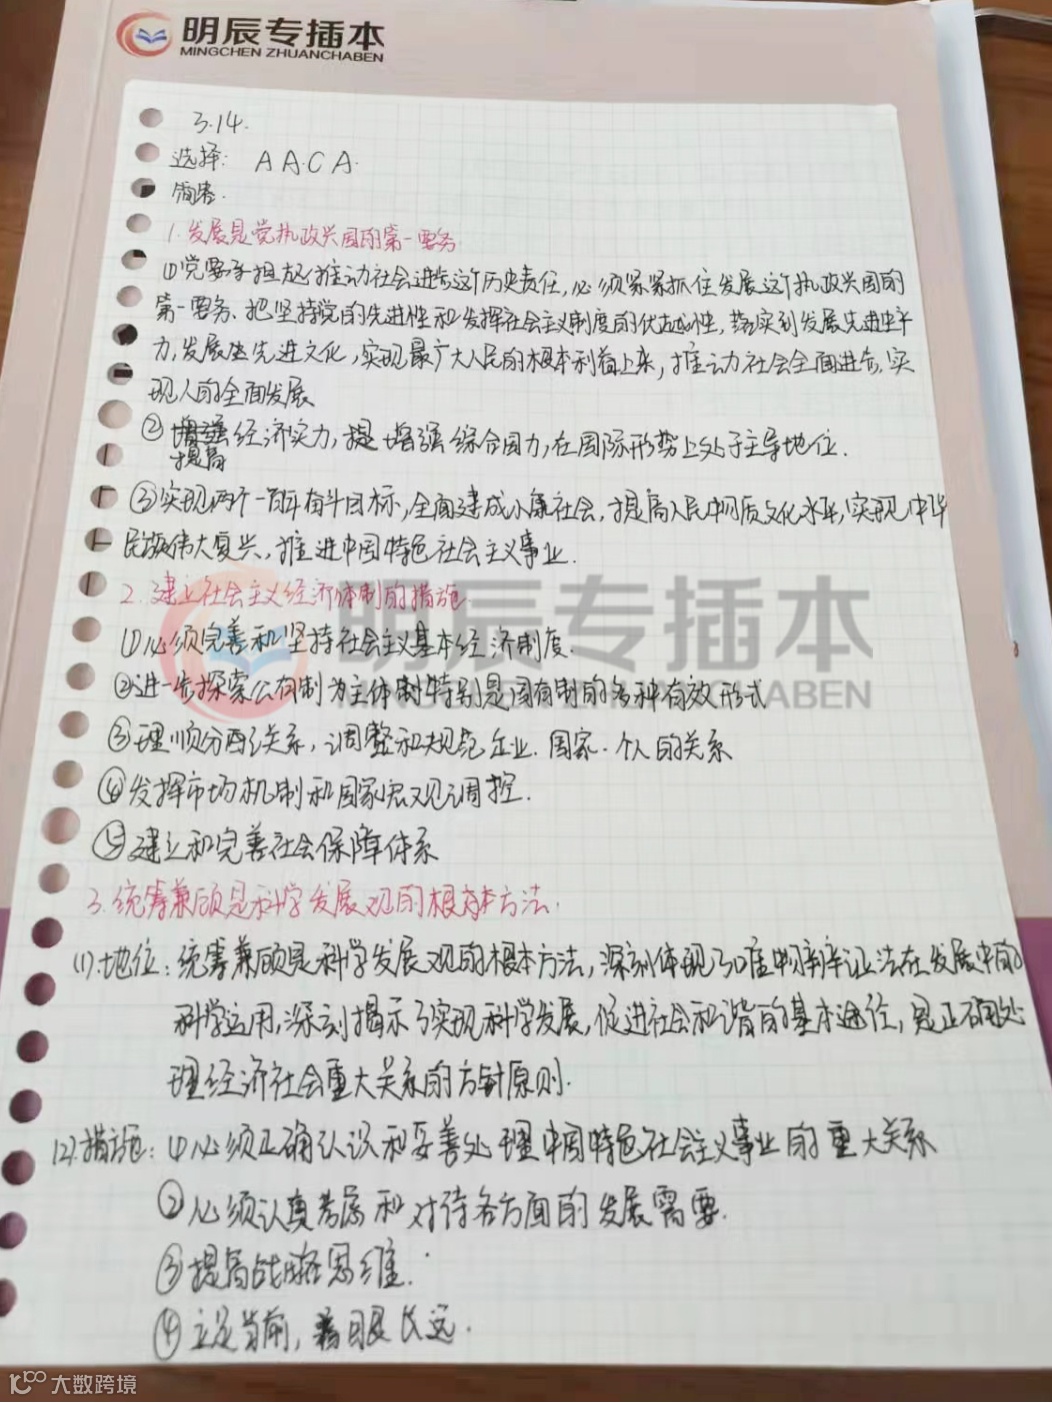 明辰专插本
MINGCHEN ZHUANCHABEN
3.14.
选择: A A.C A.
简答.
1.发展是党执政兴国的第一要务
①党要承担起推动社会进步这个历史责任,必须紧紧抓住发展这个执政兴国的
第一要务、把坚持党的先进性和发挥社会主义制度的优越性,落实到发展先进生产
力,发展先进文化,实现最广大人民的根本利益上来,推动社会全面进步,实
现人的全面发展
②增强经济实力,提增强综合国力,在国际形势上处于主导地位.
提高
③实现两个一百年奋斗目标,全面建成小康社会,提高人民物质文化水平,实现中华
民族伟大复兴,推进中国特色社会主义事业.
2.建立社会主义经济体制的措施.
①必须完善和坚持社会主义基本经济制度.
②进一步探索公有制为主体制特别是国有制的多种有效形式
③理顺分配关系,调整和规范企业.国家.个人的关系
④发挥市场机制和国家宏观调控.
⑤建立和完善社会保障体系
明辰专插本
MINGCHEN ZHUANCHABEN
3.统筹兼顾是科学发展观的根本方法.
(1).地位:统筹兼顾是科学发展观的根本方法,深刻体现了唯物辩证法在发展中的
科学运用,深刻揭示了实现科学发展,促进社会和谐的基本途径,是正确处
理经济社会重大关系的方针原则.
(2).措施:①必须正确认识和妥善处理中国特色社会主义事业的重大关系
②必须认真考虑和对待各方面的发展需要.
③提高战略思维.
④立足当前,着眼长远.
大数跨境